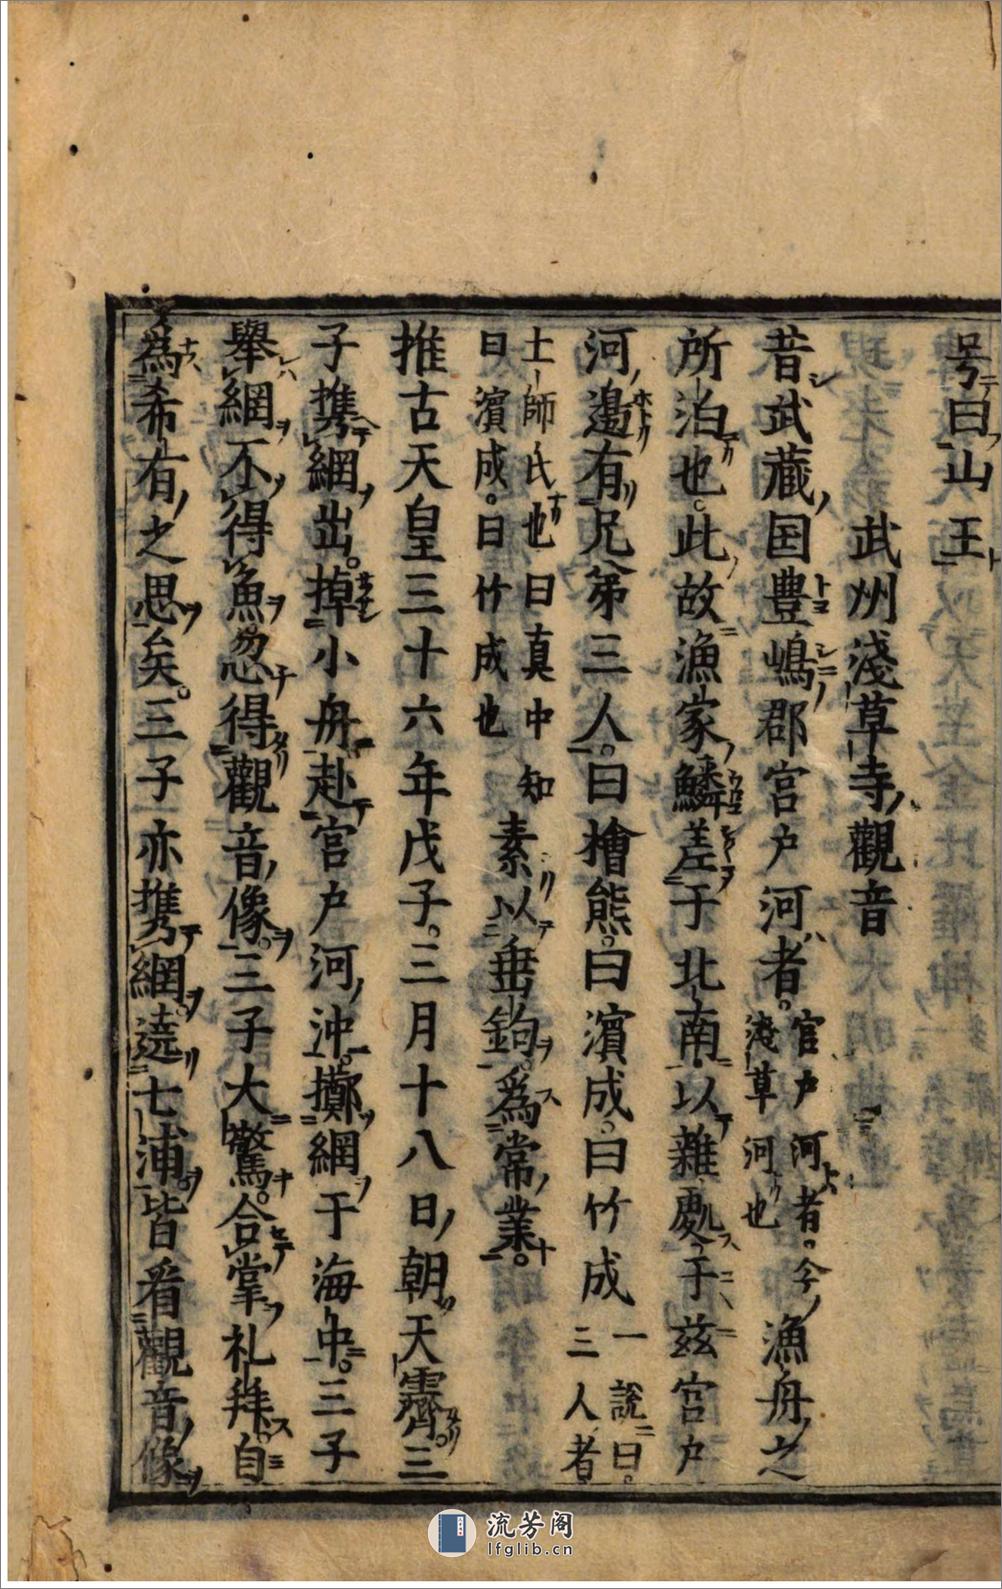 号曰山王
武州淺草寺觀音
昔武藏国豊嶋郡宮户河者。宮户河者。今淺草河也漁舟之
所泊也。此故漁家鱗差于北南。以雜處于兹宮户
河邉有兄弟三人。曰檜熊。曰濱成。曰竹成一說曰。三人者
士師氏也曰真中知曰濱成。曰竹成也素以垂鉤。為常業。
推古天皇三十六年戊子。三月十八日。朝天霽。三
子携網出。掉小舟赴宮户河沖。擲網于海中。三子
舉網不得魚忽得觀音像。三子大驚。合掌礼拜。自
為希有之思矣。三子亦携網。遶七浦皆看觀音像
流芳阁
lfglib.cn